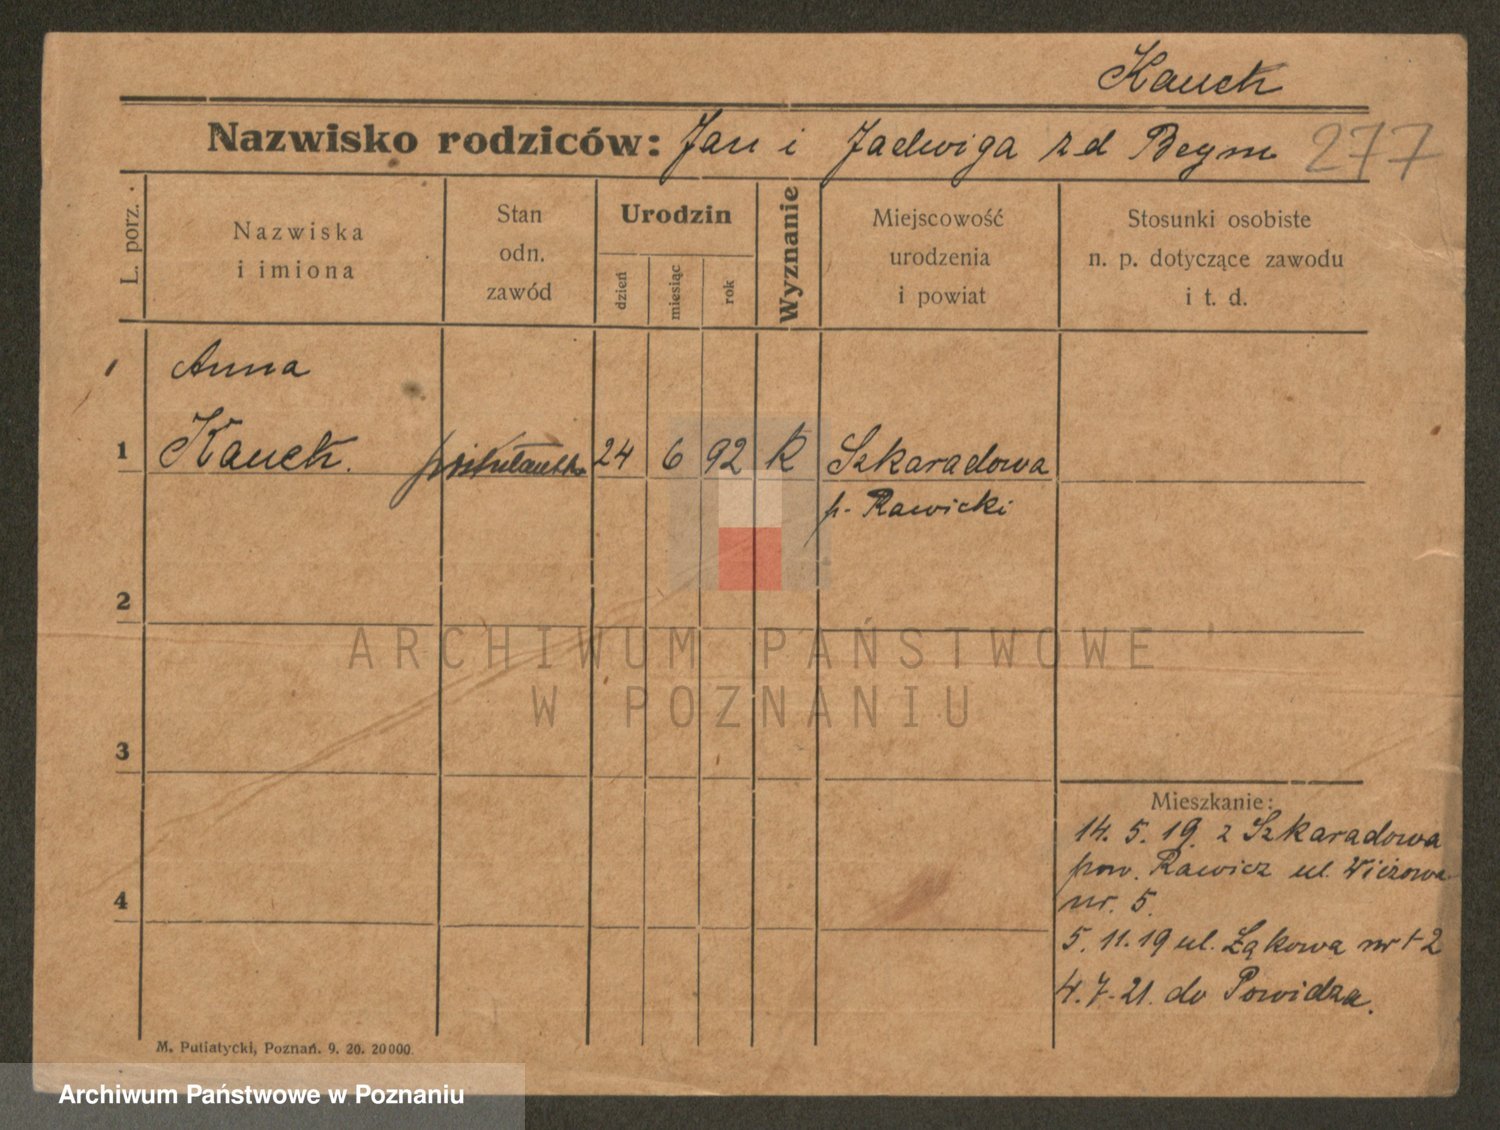 Kauck
Nazwisko rodziców: Jan i Jadwiga zd Beym 277
L. porz.
Nazwiska
i imiona
Stan
odn.
zawód
Urodzin
dzień
miesiąc
rok
Wyznanie
Miejscowość
urodzenia
i powiat
Stosunki osobiste
n. p. dotyczące zawodu
i t. d.
Anna
1 Kauck. postulantka 24 6 92 K Szkaradowa
p. Rawicki
2
ARCHIWUM PAŃSTWOWE
W POZNANIU
3
Mieszkanie:
14. 5. 19. z Szkaradowa
pow. Rawicz ul. Wieżowa
nr. 5.
4
5. 11. 19 ul. Łąkowa nr 1-2
4. 7. 21. do Powidza.
M. Putiatycki, Poznań. 9. 20. 20000.
Archiwum Państwowe w Poznaniu